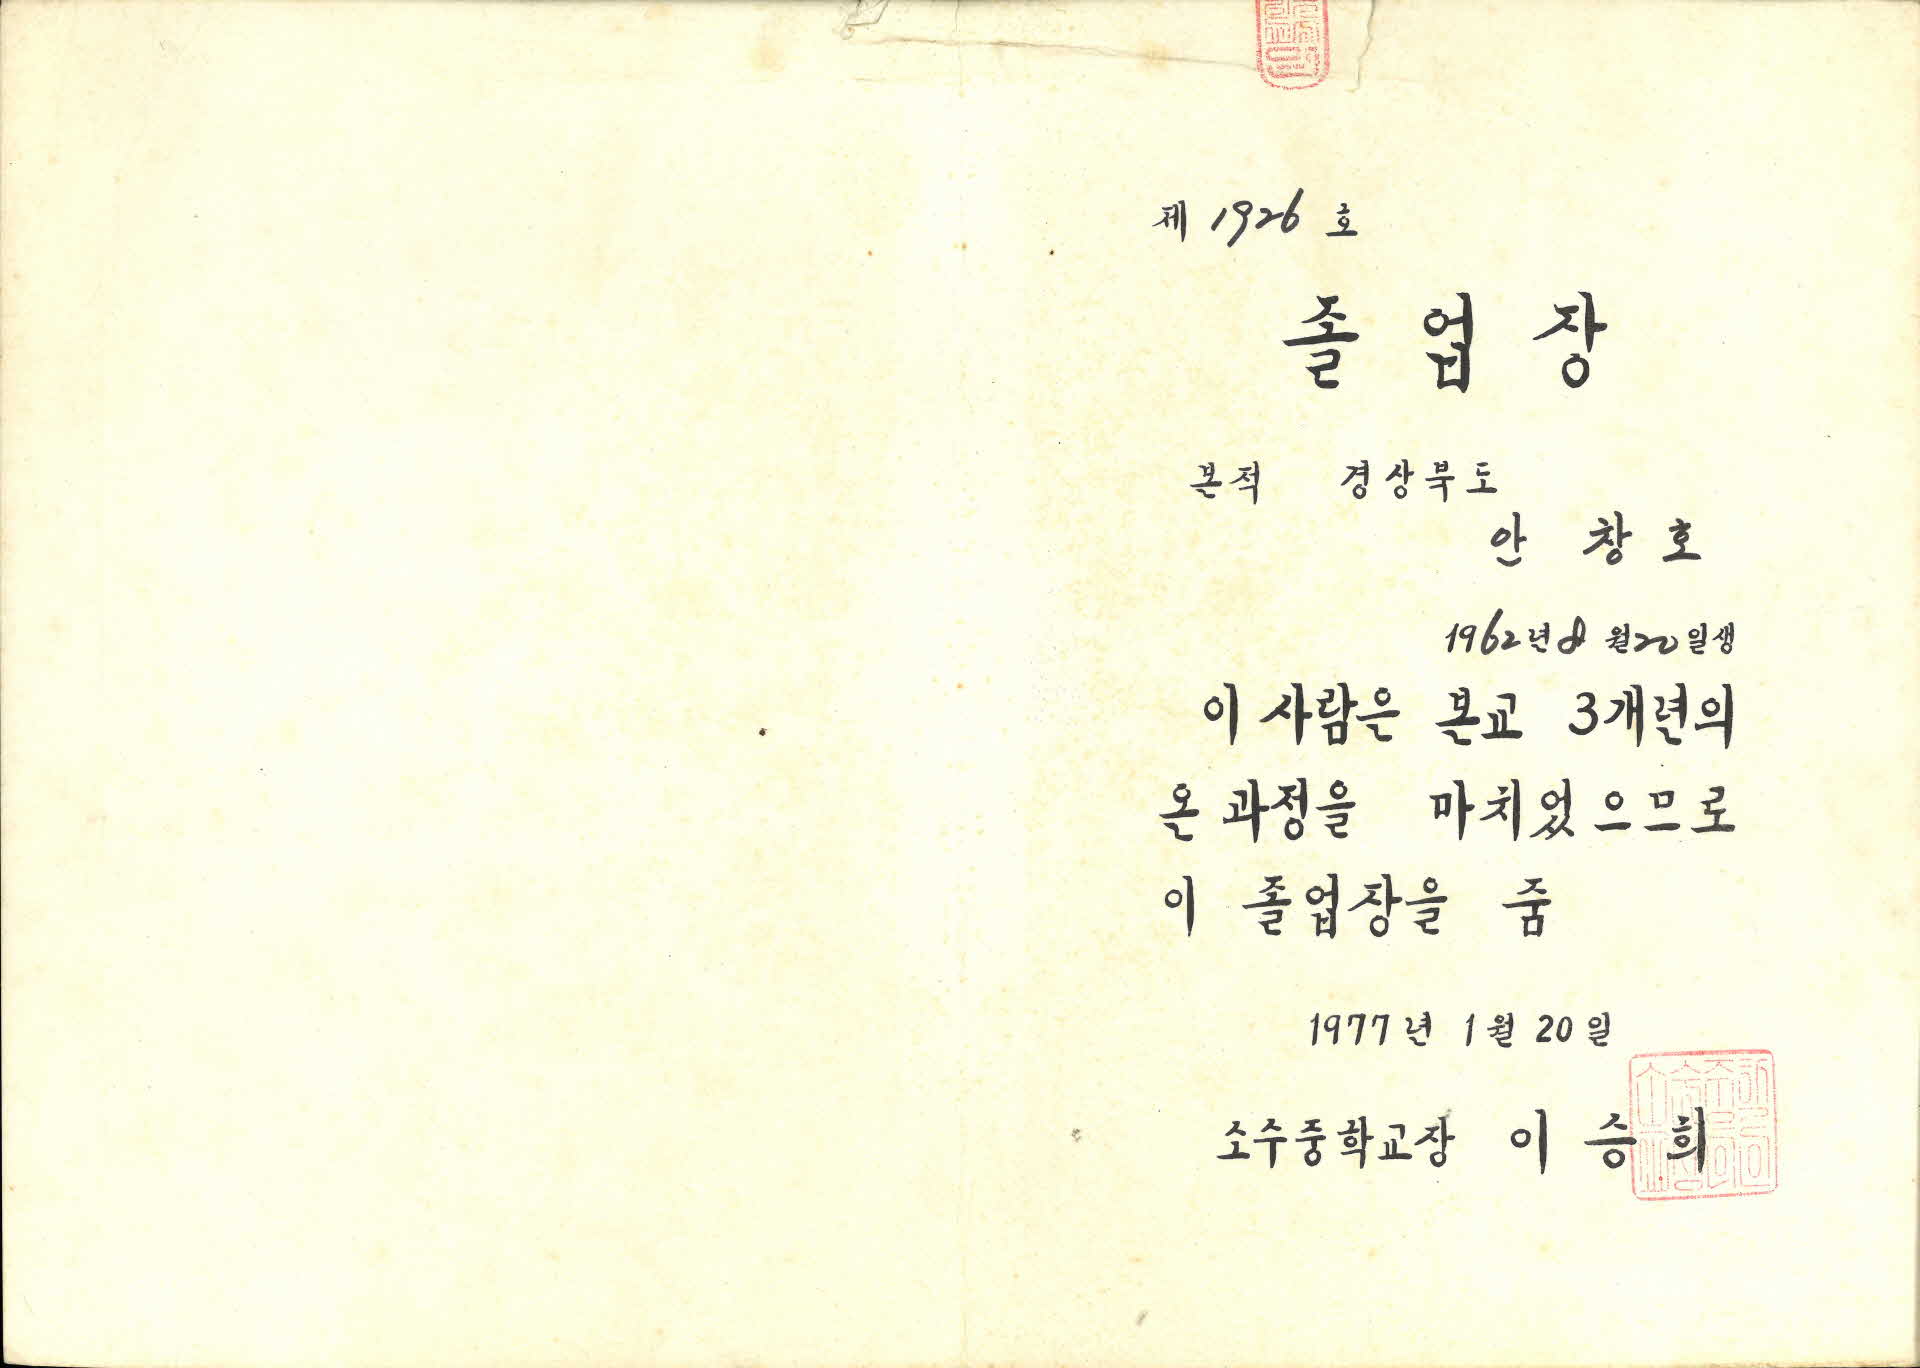 제 1926 호
졸업장
본적 경상북도
안 창 호
1962년 8월 20일생
이 사람은 본교 3개년의
온 과정을 마치었으므로
이 졸업장을 줌
1977년 1월 20일
소수중학교장 이 승 희